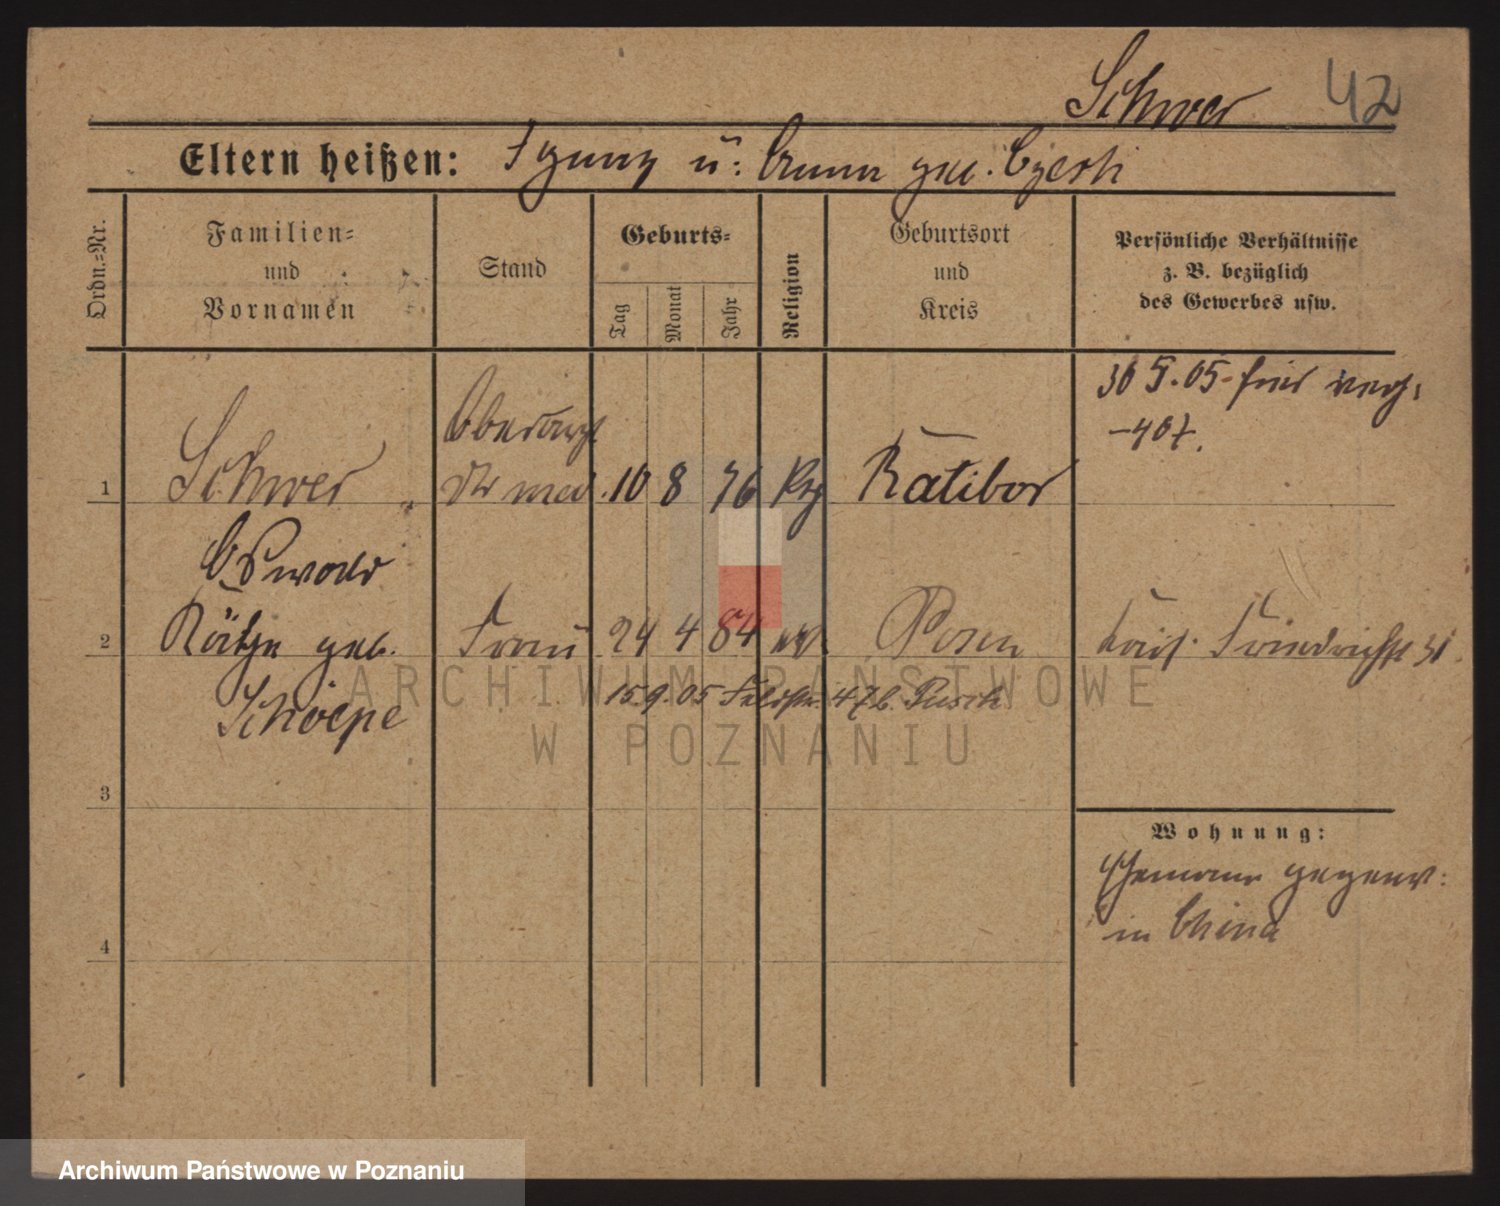 Schwer 42
Eltern heißen: Ignaz u: Anna geb. Czech
Ordn.=Nr.
Familien=
und
Vornamen
Stand
Geburts=
Tag
Monat
Jahr
Religion
Geburtsort
und
Kreis
Persönliche Verhältnisse
z. B. bezüglich
des Gewerbes usw.
1 Schwer
Oswald
Oberarzt
Dr med. 10 8 76 Ratibor
2 Käthe geb.
Schöepe
Frau 24 4 84 ev. Posen
Kais. Friedrichstr 31.
15.9.05 Feldstr. 47b.
3
4
Wohnung:
Ehemann gegenw:
in China
ARCHIWUM PAŃSTWOWE
W POZNANIU
Archiwum Państwowe w Poznaniu